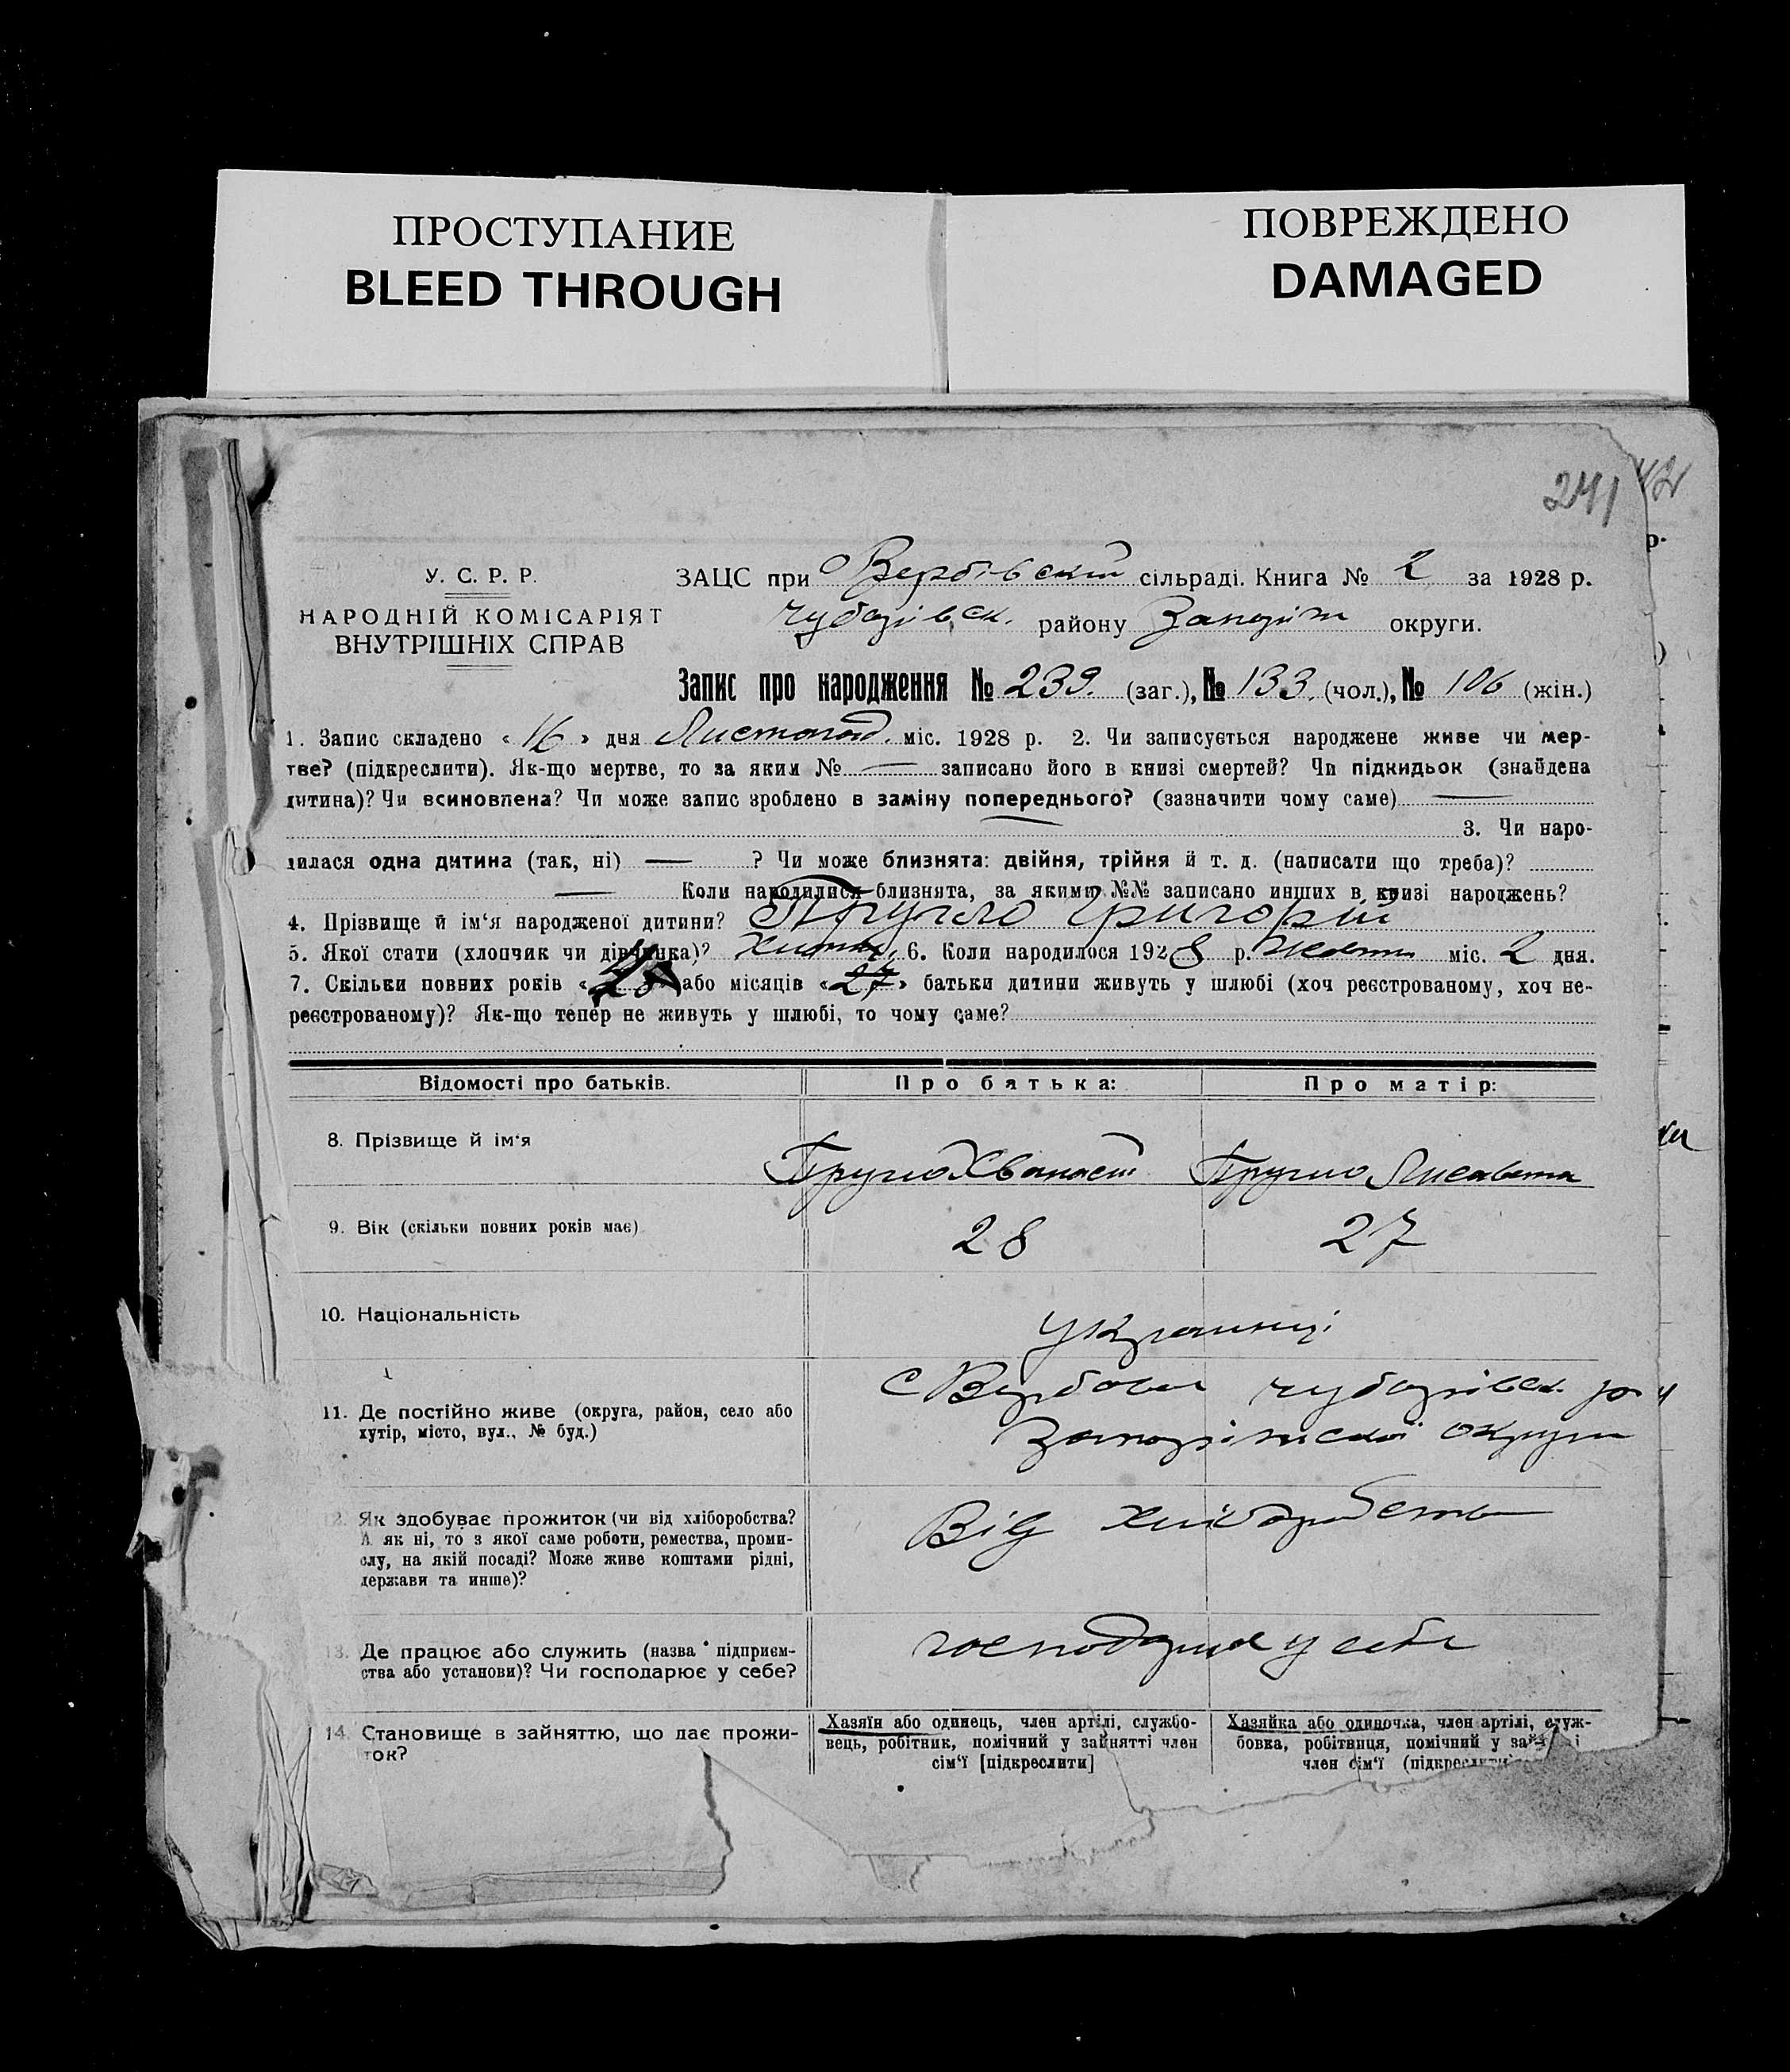 ПРОСТУПАНИЕ
BLEED THROUGH
ПОВРЕЖДЕНО
DAMAGED
241
У. С. Р. Р.
НАРОДНІЙ КОМІСАРІЯТ
ВНУТРІШНІХ СПРАВ
ЗАЦС при Вербівскій сільраді. Книга № 2 за 1928 р.
Чубарівск. району Запоріж округи.
Запис про народження № 239. (заг.), № 133. (чол.), № 106 (жін.)
1. Запис складено « 16 » дня Листопад. міс. 1928 р. 2. Чи записується народжене живе чи мер-
тве? (підкреслити). Як-що мертве, то за яким № — записано його в книзі смертей? Чи підкидьок (знайдена
дитина)? Чи всиновлена? Чи може запис зроблено в заміну попереднього? (зазначити чому саме) —
3. Чи наро-
дилася одна дитина (так, ні) — ? Чи може близнята: двійня, трійня й т. д. (написати що треба)?
— Коли народилися близнята, за якими №№ записано инших в книзі народжень?
4. Прізвище й ім‘я народженої дитини? Григорій
5. Якої стати (хлопчик чи дівчинка)? 6. Коли народилося 1928 р. Жовтн міс. 2 дня.
7. Скільки повних років « » або місяців « 27 » батьки дитини живуть у шлюбі (хоч реєстрованому, хоч не-
реєстрованому)? Як-що тепер не живуть у шлюбі, то чому саме?
Відомості про батьків.
Про батька:
Про матір:
8. Прізвище й ім‘я
9. Вік (скільки повних років має)
28
27
10. Національність
Українці
11. Де постійно живе (округа, район, село або
хутір, місто, вул., № буд.)
с Вербова Чубарівск. р
Запоріжскої округи
12. Як здобуває прожиток (чи від хліборобства?
А як ні, то з якої саме роботи, ремества, проми-
слу, на якій посаді? Може живе коштами рідні,
держави та инше)?
Від хліборобства
13. Де працює або служить (назва підприєм-
ства або установи)? Чи господарює у себе?
господарює у себе
14. Становище в зайняттю, що дає прожи-
ток?
Хазяїн або одинець, член артілі, службо-
вець, робітник, помічний у зайнятті член
сім‘ї [підкреслити]
Хазяйка або одиночка, член артілі, служ-
бовка, робітниця, помічний у
член сім‘ї